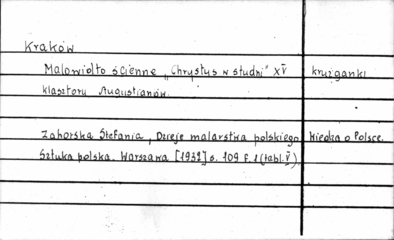 Kraków
Malowidło ścienne „Chrystus w studni" XV krużganki
klasztoru Augustianów.
Zahorska Stefania, Dzieje malarstwa polskiego. Wiedza o Polsce.
Sztuka polska. Warszawa [1932] s. 109 f. 1 (tabl. V).